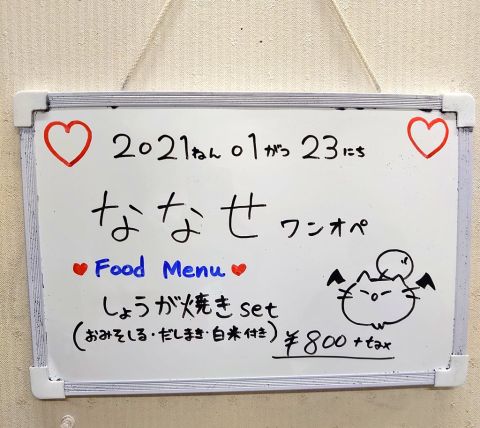 2021ねん 01がつ 23にち
ななせ ワンオペ
Food Menu
しょうが焼きset
(おみそしる・だしまき・白米付き)
¥800+tax